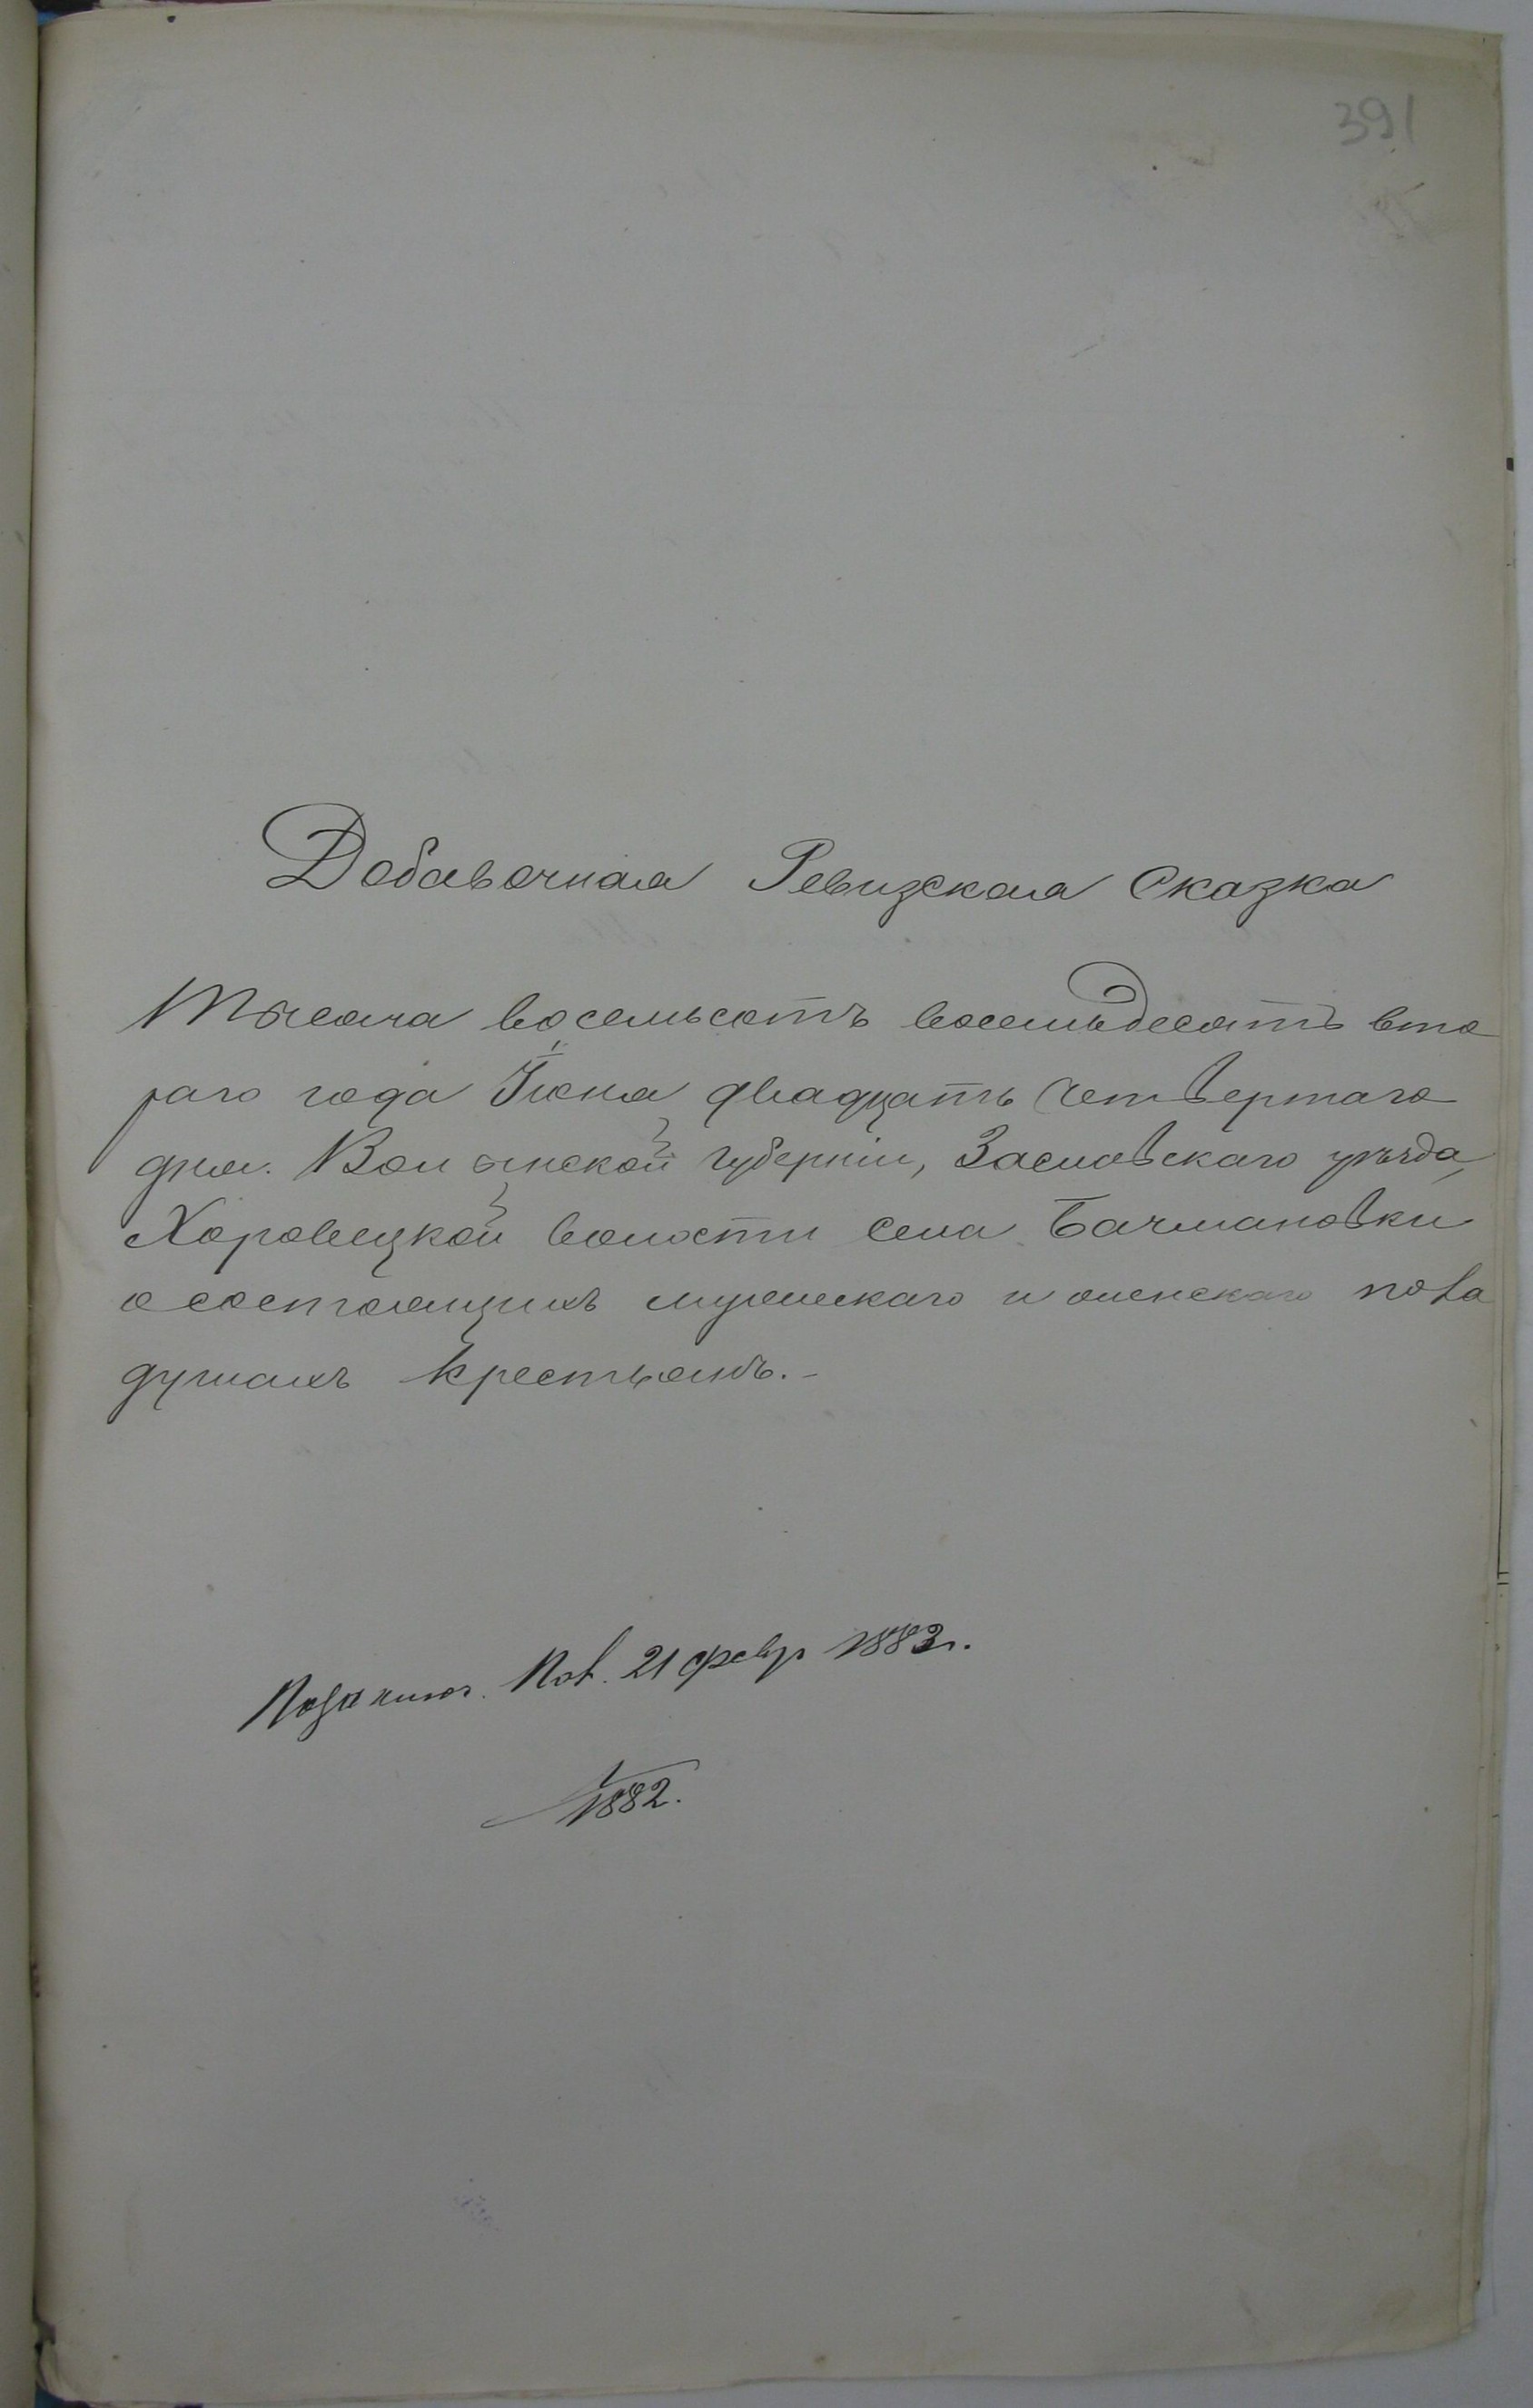 391
Добавочная Ревизская Сказка
Тысяча восемьсотъ восемьдесятъ вто
раго года Іюня двадцать четвертаго
дня. Волынской губерніи, Заславскаго уѣзда,
Хоровецкой волости села Бачмановки
о состоящихъ мужескаго и женскаго пола
душахъ крестьянъ.-
21 февр 1883 г.
1882.